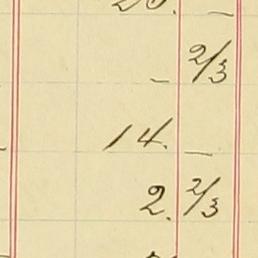 — 2/3
14. —
2. 2/3